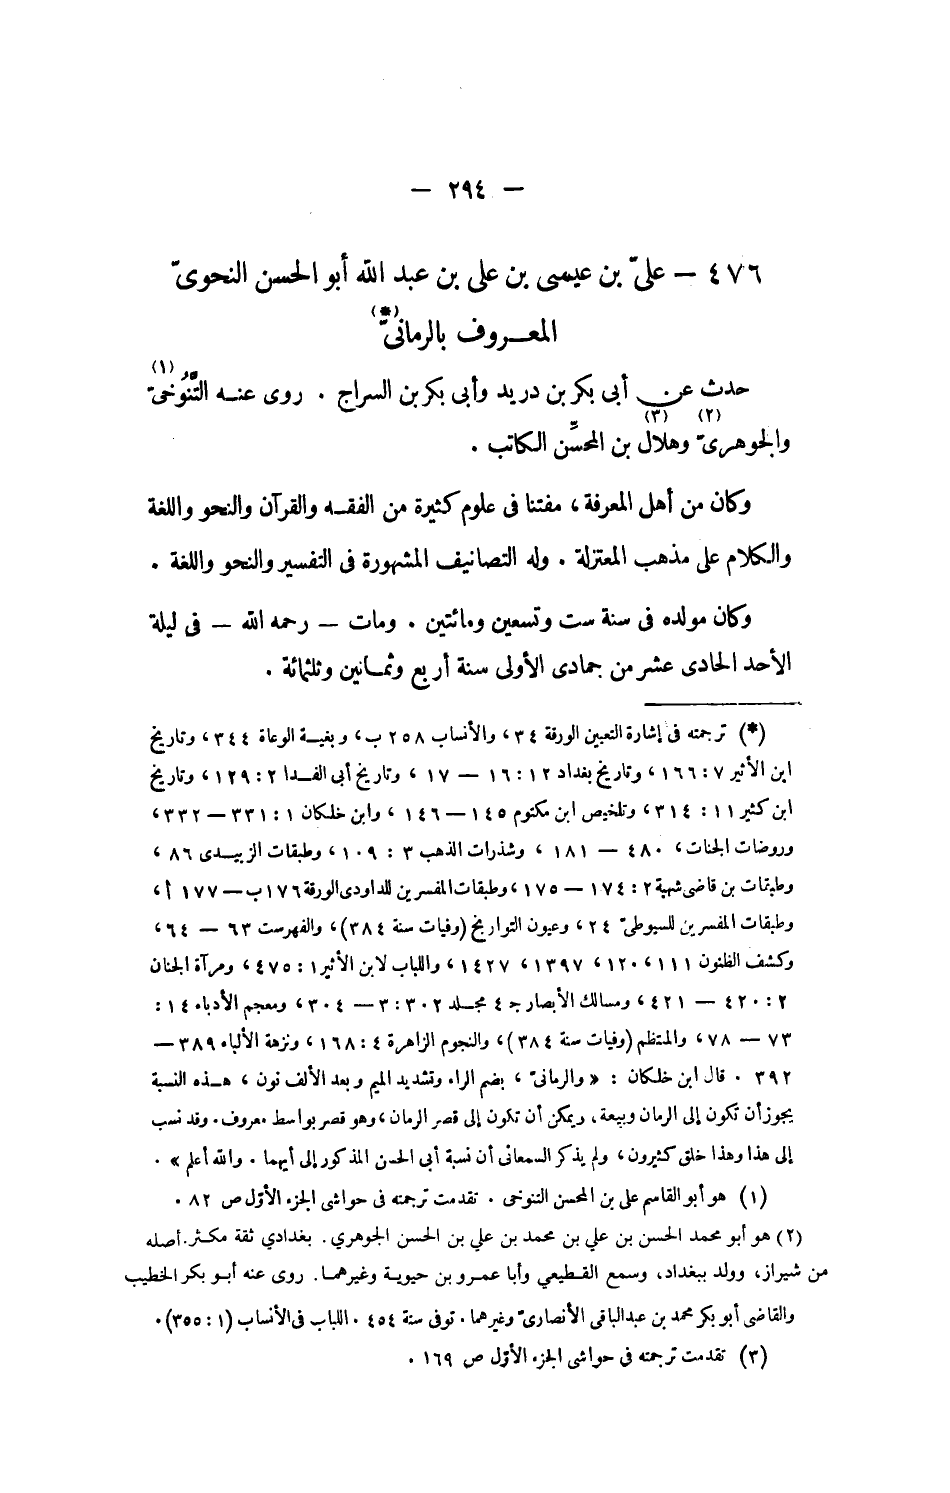 — ٢٩٤ —
٤٧٦ — علىّ بن عيسى بن على بن عبد الله أبو الحسن النحوىّ
المعروف بالرمانىّ(*)
حدث عن أبى بكر بن دريد وأبى بكر بن السراج . روى عنه التَّنُوخىّ(١)
والجوهرىّ(٢) وهلال(٣) بن المحسِّن الكاتب .
وكان من أهل المعرفة ، مفتنا فى علوم كثيرة من الفقه والقرآن والنحو واللغة
والكلام على مذهب المعتزلة . وله التصانيف المشهورة فى التفسير والنحو واللغة .
وكان مولده فى سنة ست وتسعين ومائتين . ومات — رحمه الله — فى ليلة
الأحد الحادى عشر من جمادى الأولى سنة أربع وثمانين وثلثمائة .
(*) ترجمته فى إشارة التعيين الورقة ٣٤ ، والأنساب ٢٥٨ ب ، وبغية الوعاة ٣٤٤ ، وتاريخ
ابن الأثير ٧ : ١٦٦ ، وتاريخ بغداد ١٢ : ١٦ — ١٧ ، وتاريخ أبى الفدا ٢ : ١٢٩ ، وتاريخ
ابن كثير ١١ : ٣١٤ ، وتلخيص ابن مكتوم ١٤٥ — ١٤٦ ، وابن خلكان ١ : ٣٣١ — ٣٣٢ ،
وروضات الجنات ، ٤٨٠ — ١٨١ ، وشذرات الذهب ٣ : ١٠٩ ، وطبقات الزبيدى ٨٦ ،
وطبقات بن قاضى شهبة ٢ : ١٧٤ — ١٧٥ ، وطبقات المفسرين للداودى الورقة ١٧٦ ب — ١٧٧ أ ،
وطبقات المفسرين للسيوطىّ ٢٤ ، وعيون التواريخ (وفيات سنة ٣٨٤) ، والفهرست ٦٣ — ٦٤ ،
وكشف الظنون ١١١ ، ١٢٠٦ ، ١٣٩٧ ، ١٤٢٧ ، واللباب لابن الأثير ١ : ٤٧٥ ، ومرآة الجنان
٢ : ٤٢٠ — ٤٢١ ، ومسالك الأبصار جـ ٤ مجلد ٣٠٢ : ٣ — ٣٠٤ ، ومعجم الأدباء ١٤ :
٧٣ — ٧٨ ، والمنتظم (وفيات سنة ٣٨٤) ، والنجوم الزاهرة ٤ : ١٦٨ ، ونزهة الألباء ٣٨٩ —
٣٩٢ . قال ابن خلكان : « والرمانىّ ، بضم الراء وتشديد الميم وبعد الألف نون ، هذه النسبة
يجوز أن تكون إلى الرمان وبيعة ، ويمكن أن تكون إلى قصر الرمان ، وهو قصر بواسط معروف . وقد نسب
إلى هذا وهذا خلق كثيرون ، ولم يذكر السمعانى أن نسبة أبى الحسن المذكور إلى أيهما . والله أعلم » .
(١) هو أبو القاسم على بن المحسن التنوخى . تقدمت ترجمته فى حواشى الجزء الأوّل ص ٨٢ .
(٢) هو أبو محمد الحسن بن علي بن محمد بن علي بن الحسن الجوهري. بغدادي ثقة مكثر. أصله
من شيراز، وولد ببغداد، وسمع القطيعي وأبا عمرو بن حيوية وغيرهما. روى عنه أبو بكر الخطيب
والقاضى أبو بكر محمد بن عبد الباقى الأنصارىّ وغيرهما . توفى سنة ٤٥٤ . اللباب فى الأنساب (١ : ٣٥٥) .
(٣) تقدمت ترجمته فى حواشى الجزء الأوّل ص ١٦٩ .